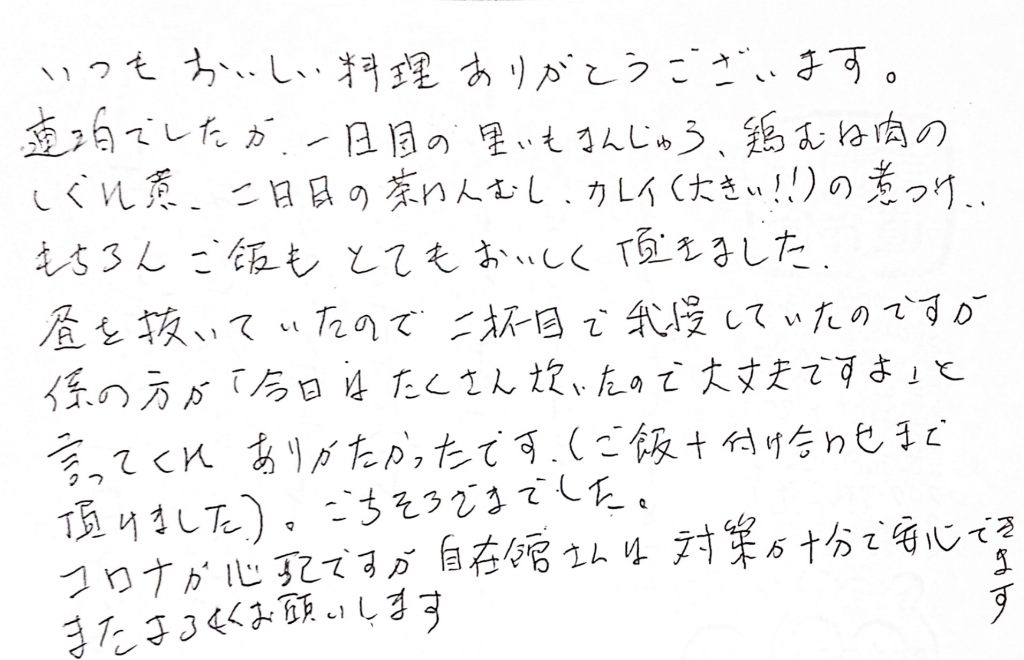 いつもおいしい料理ありがとうございます。
連泊でしたが、一日目の里いもまんじゅう、鶏むね肉の
しぐれ煮、二日目の茶わんむし、カレイ(大きい!!)の煮つけ、
もちろんご飯もとてもおいしく頂きました。
昼を抜いていたので二杯目で我慢していたのですが
係の方が「今日はたくさん炊いたので大丈夫ですよ」と
言ってくれありがたかったです。(ご飯+付け合わせまで
頂けました)。ごちそうさまでした。
コロナが心配ですが自在館さんは対策が十分で安心できます
またよろしくお願いします